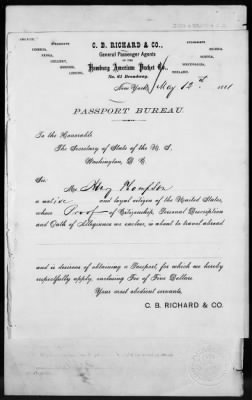 C. B. RICHARD & CO.,
General Passenger Agents
OF THE
Hamburg American Packet Co.,
No. 61 Broadway.
New York, May 12th 1881
PASSPORT BUREAU.
To the Honorable
The Secretary of State of the U. S.
Washington, D. C.
Sir
Mr
a native and loyal citizen of the United States,
whose Proof of Citizenship, Personal Description
and Oath of Allegiance we enclose, is about to travel abroad
and is desirous of obtaining a Passport, for which we hereby
respectfully apply, enclosing Fee of Five Dollars.
Your most obedient servants,
C. B. RICHARD & CO.